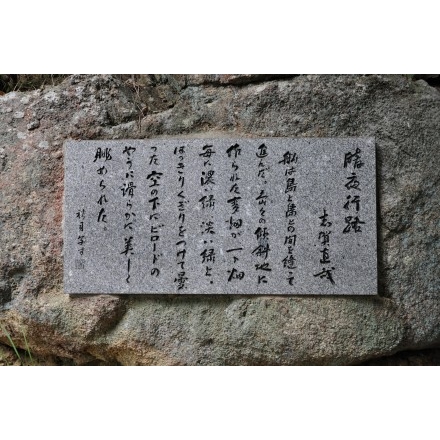 暗夜行路
志賀直哉
船は島と島との間を縫って
進んだ。島々の傾斜地に
作られた麦畑が一ト畑
毎に濃い緑、淡い緑と、
はっきりくぎりをつけて曇
った空の下にビロードの
やうに滑らかに美しく
眺められた